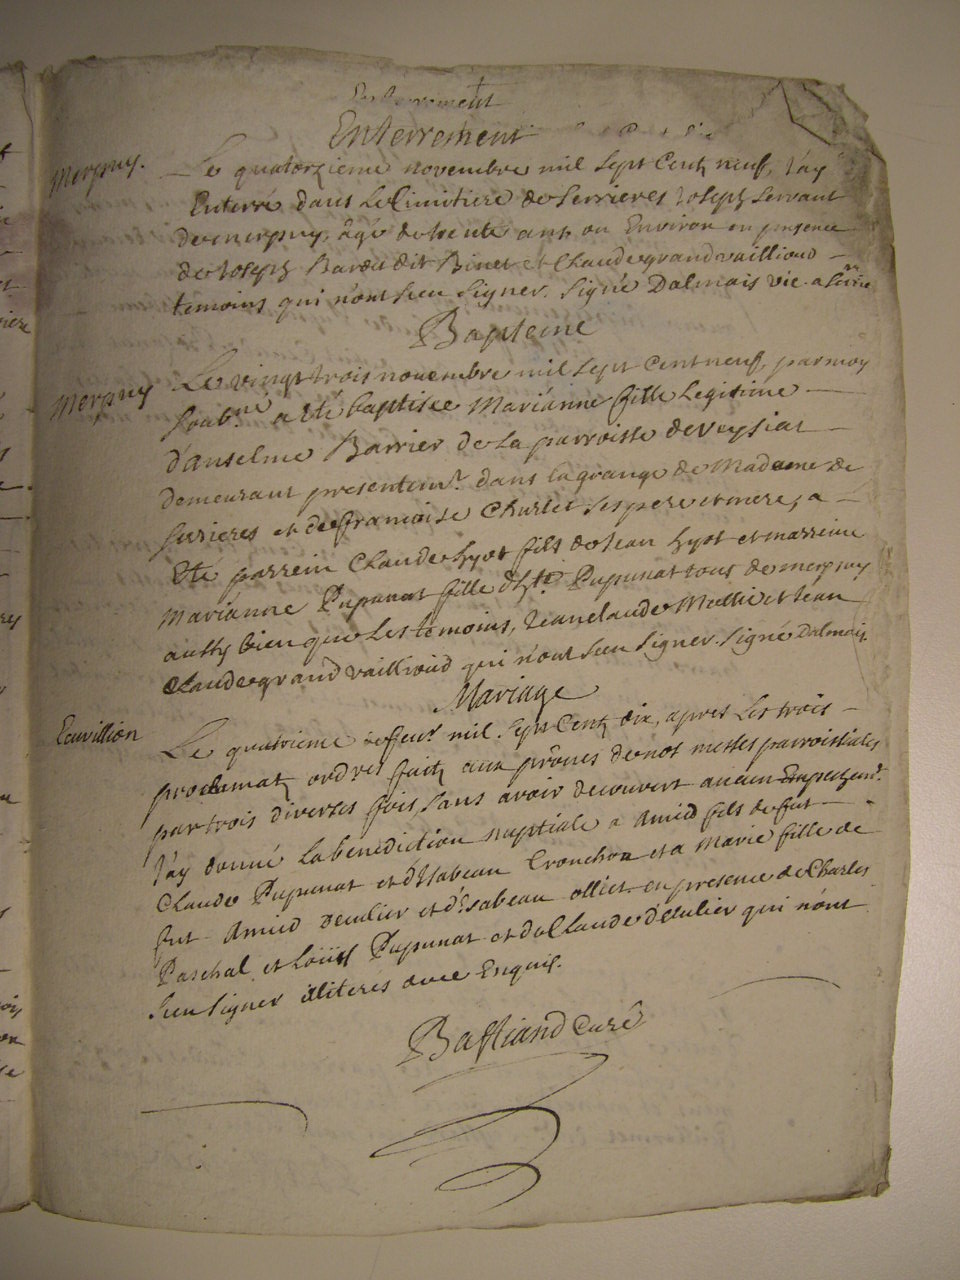 Enterrement
Merpuy.
Le quatorzieme novembre mil sept Centz neuf, J'ay
Enterré dans Le Cimitiere de Serrieres Joseph Servant
de merpuy, âgé de trente ans ou Environ en presence
de Joseph Bardu dit Binet et Claude grandvaillioud
temoins qui n'ont sceu signer. Signé Dalmais vic. a Serrie
Bapteme
Merpuy
Le vingt trois novembre mil sept Cent neuf, par moy
soubné a été baptisée Mariánne fille Legitime
d'Anselme Barrier de La parroisse de veysiat
demeurant presentemt. dans la grange de Madame de
serieres et de francoise Churlet ses pere et mere, a
été parrein Claude hyot fils de Jean hyot et marreine
Mariánne Pupunat fille Pupunat tous de merpuy
aussy bien que Les temoins, Jean claude et Jean
Claude grand vaillioud qui n'ont sceu signer. Signé Dalmais.
Mariage
Ecuvillion
Le quatrieme de feur. mil. sept Centz dix, apres Les trois
proclamatz ordres faitz aux prônes de nos messes parroissiales
par trois diverses fois, sans avoir decouvert aucun Empechemt.
J'ay donné La benediction nuptiale a Amid fils de fut
Claude Pupunat et d'Isabeau Tronchon et a Marie fille de
fut Amid deculier et d'isabeau olliet en presence de Charles
Paschal et Loüis Pupunat et de Claude deculier qui n'ont
sceu signer iliteres avec Enquis.
Bastiand Curé